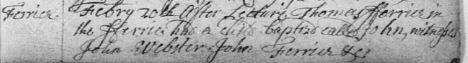 Ferrier Febry 20th After Lecture Thomas fferrier in
the fferrie has a child baptisd called John, witnesses
John Webster John Ferrier &c